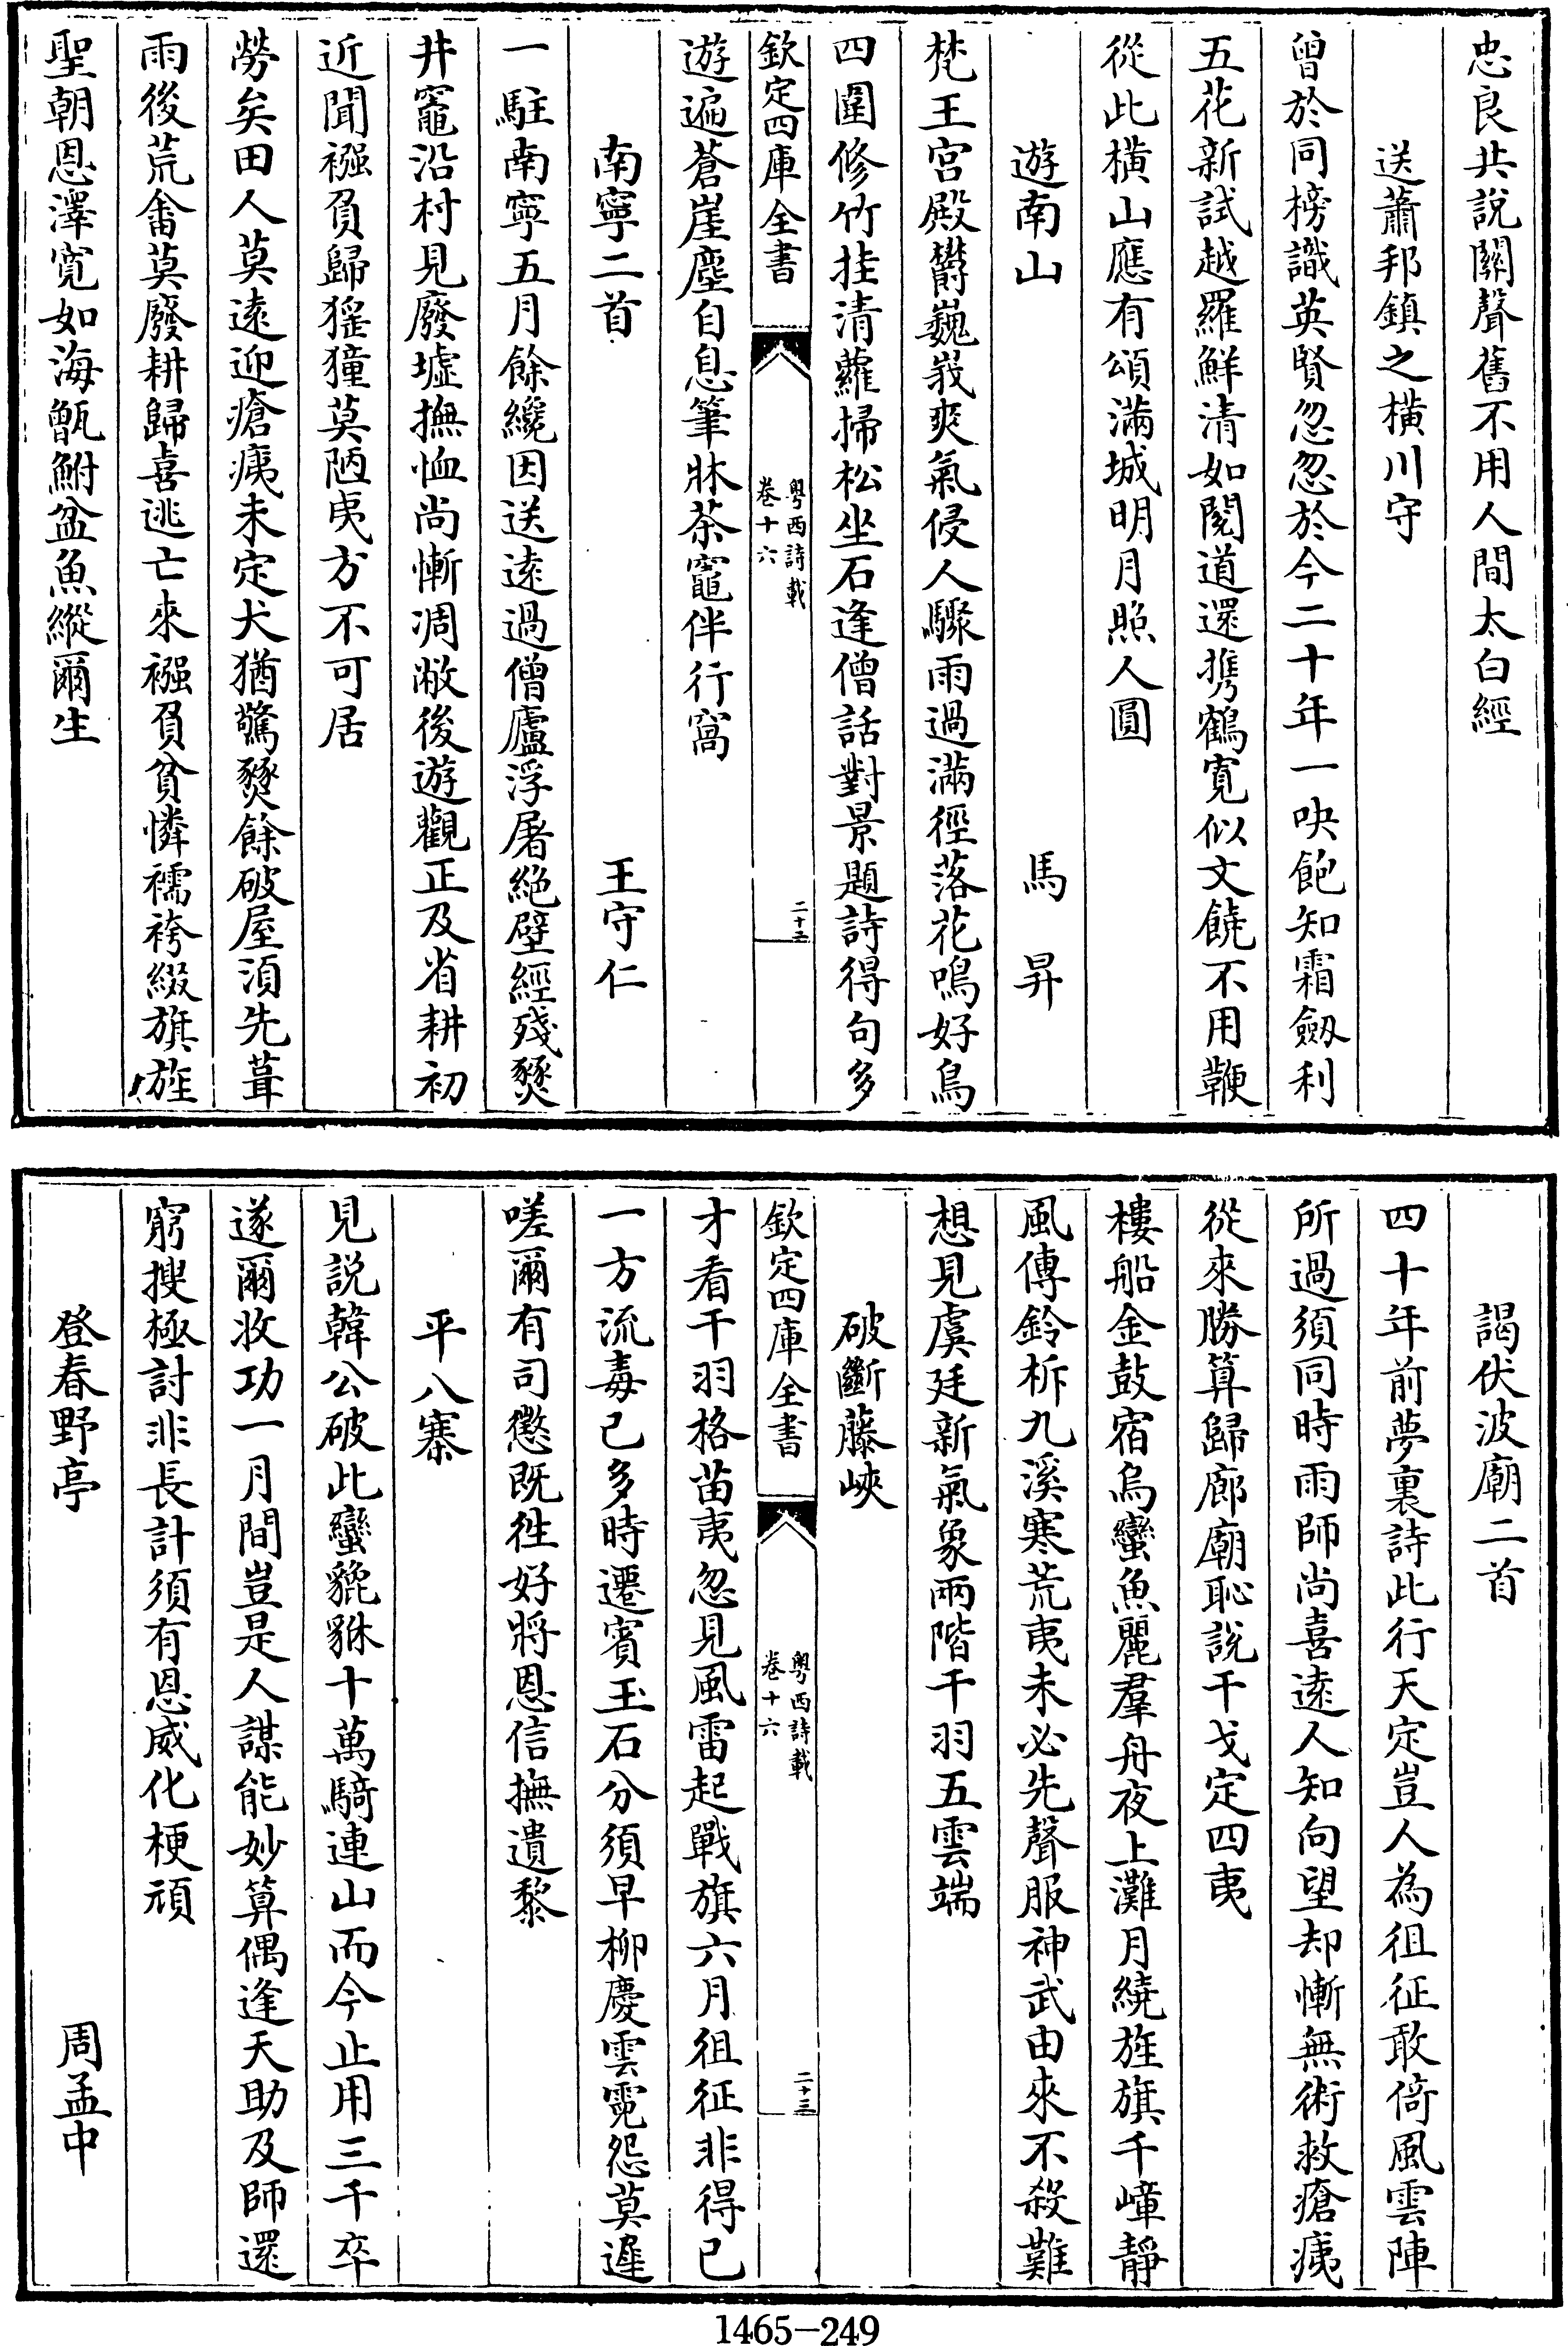 忠良共說關聲舊不用人間太白經
送蕭邦鎮之橫川守
曾於同榜識英賢忽忽於今二十年一吷飽知霜劒利
五花新試越羅鮮清如閱道還携鶴寛似文饒不用鞭
從此橫山應有頌滿城明月照人圓
遊南山　馬昇
梵王宫殿欝巍峩爽氣侵人驟雨過滿徑落花鳴好鳥
四圍修竹挂清蘿掃松坐石逢僧話對景題詩得句多
欽定四庫全書　粵西詩載　卷十六　二十二
遊遍蒼崖塵自息筆牀茶竈伴行窩
南寧二首　王守仁
一駐南寧五月餘纔因送遠過僧廬浮屠絶壁經殘燹
井竈沿村見廢墟撫恤尚慚凋敝後遊觀正及省耕初
近聞襁負歸猺獞莫陋夷方不可居
勞矣田人莫遠迎瘡痍未定犬猶驚燹餘破屋湏先葺
雨後荒畬莫廢耕歸喜逃亡來襁負貧憐襦袴綴旗旌
聖朝恩澤寛如海甑鮒盆魚縱爾生
謁伏波廟二首
四十年前夢裏詩此行天定豈人為徂征敢倚風雲陣
所過須同時雨師尚喜遠人知向望却慚無術救瘡痍
從來勝算歸廊廟恥說干戈定四夷
樓船金鼓宿烏蠻魚麗羣舟夜上灘月繞旌旗千嶂靜
風傳鈴柝九溪寒荒夷未必先聲服神武由來不殺難
想見虞廷新氣象兩階干羽五雲端
破斷藤峽
欽定四庫全書　粵西詩載　卷十六　二十三
才看干羽格苗夷忽見風雷起戰旗六月徂征非得已
一方流毒已多時遷賓玉石分須早柳慶雲霓怨莫遲
嗟爾有司懲既徃好將恩信撫遺黎
平八寨
見説韓公破此蠻貔貅十萬騎連山而今止用三千卒
遂爾收功一月間豈是人謀能妙算偶逢天助及師還
窮搜極討非長計須有恩威化梗頑
登春野亭　周孟中
1465—249